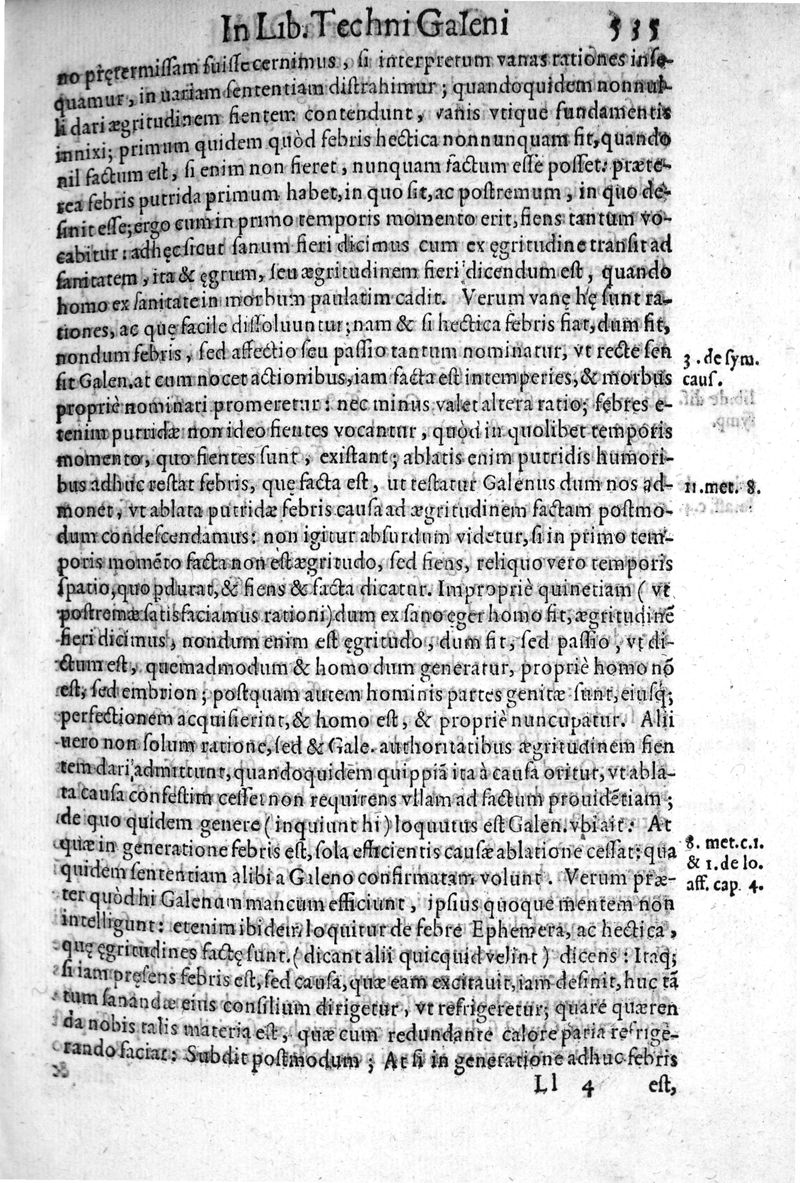 In Lib. Techni Galeni 535
no prętermissam fuisse cernimus, si interpretum varias rationes inse-
quamur, in uariam sententiam distrahimur; quandoquidem nonnul-
li dari ægritudinem fientem contendunt, vanis vtique fundamentis
innixi; primum quidem quòd febris hectica nonnunquam fit, quando
nil factum est, si enim non fieret, nunquam factum esse posset: præte-
rea febris putrida primum habet, in quo sit, ac postremum, in quo de-
sinit esse; ergo cum in primo temporis momento erit, fiens tantum vo-
cabitur: adhęc sicut sanum fieri dicimus cum ex ęgritudine transit ad
sanitatem, ita & ęgrum, seu ægritudinem fieri dicendum est, quando
homo ex sanitate in morbum paulatim cadit. Verum vanę hę sunt ra-
tiones, ac quę facile dissoluuntur; nam & si hectica febris fiat, dum fit,
nondum febris, sed affectio seu passio tantum nominatur, vt recte sen
sit Galen. at cum nocet actionibus, iam facta est intemperies, & morbus
3. de sym.
caus.
propriè nominari promeretur: nec minus valet altera ratio; febres e-
tenim putridæ non ideo fientes vocantur, quòd in quolibet temporis
momento, quo fientes sunt, existant; ablatis enim putridis humori-
bus adhuc restat febris, quę facta est, ut testatur Galenus dum nos ad-
11. met. 8.
monet, vt ablata putridæ febris causa ad ægritudinem factam postmo-
dum condescendamus: non igitur absurdum videtur, si in primo tem-
poris momẽto facta non est ægritudo, sed fiens, reliquo vero temporis
spatio, quo pdurat, & fiens & facta dicatur. Impropriè quinetiam (vt
postremæ satisfaciamus rationi) dum ex sano ęger homo fit, ægritudinẽ
fieri dicimus, nondum enim est ęgritudo, dum fit, sed passio, vt di-
ctum est, quemadmodum & homo dum generatur, propriè homo nõ
est, sed embrion; postquam autem hominis partes genitæ sunt, eiusq;
perfectionem acquisierint, & homo est, & propriè nuncupatur. Alii
uero non solum ratione, sed & Gale. authoritatibus ægritudinem fien
tem dari admittunt, quandoquidem quippiã ita à causa oritur, vt abla-
ta causa confestim cesset non requirens vllam ad factum prouidẽtiam;
de quo quidem genere (inquiunt hi) loquutus est Galen. vbi ait: At
quæ in generatione febris est, sola efficientis causæ ablatione cessat: qua
8. met. c. 1.
& 1. de lo.
aff. cap. 4.
quidem sententiam alibi a Galeno confirmatam volunt. Verum præ-
ter quòd hi Galenum mancum efficiunt, ipsius quoque mentem non
intelligunt: etenim ibidem loquitur de febre Ephemera, ac hectica,
quę ęgritudines factę sunt. (dicant alii quicquid velint) dicens: Itaq;
si iam pręsens febris est, sed causa, quæ eam excitauit, iam desinit, huc tã
tum sanandæ eius consilium dirigetur, vt refrigeretur; quare quæren
da nobis talis materia est, quæ cum redundante calore paria refrige-
rando faciat: Subdit postmodum; At si in generatione adhuc febris
Ll 4 est,